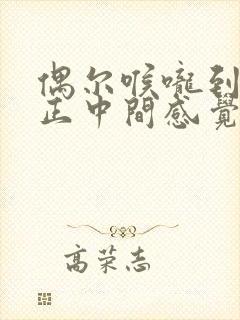 偶尔喉嚨到
正中間感覺
高荣志